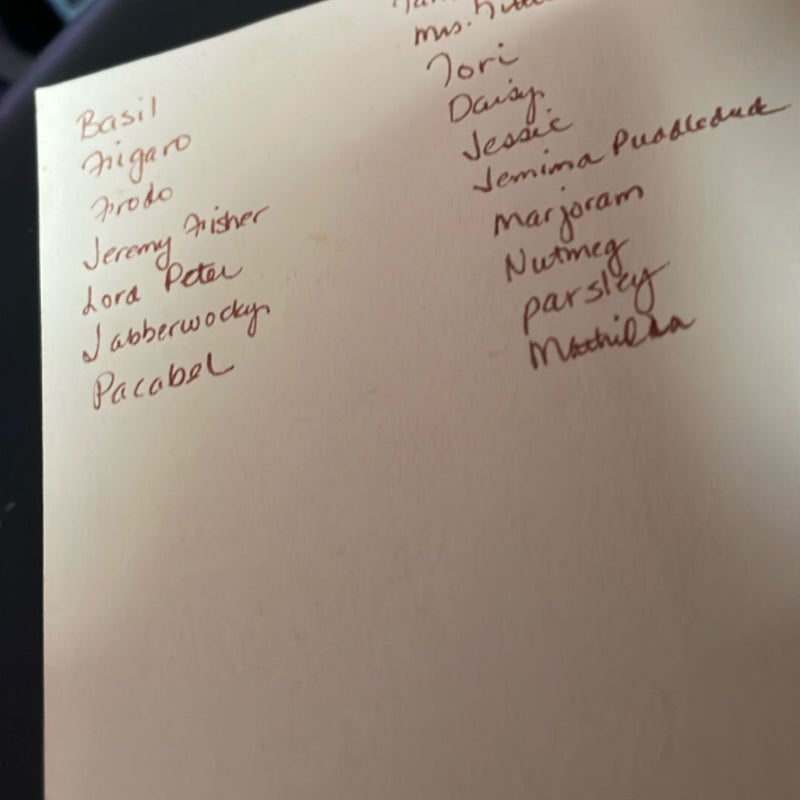 Basil
Figaro
Frodo
Jeremy Fisher
Lord Peter
Jabberwocky
Pacabel
Mrs.
Tori
Daisy
Jessie
Jemima Puddleduck
Marjoram
Nutmeg
parsley
Mathilda